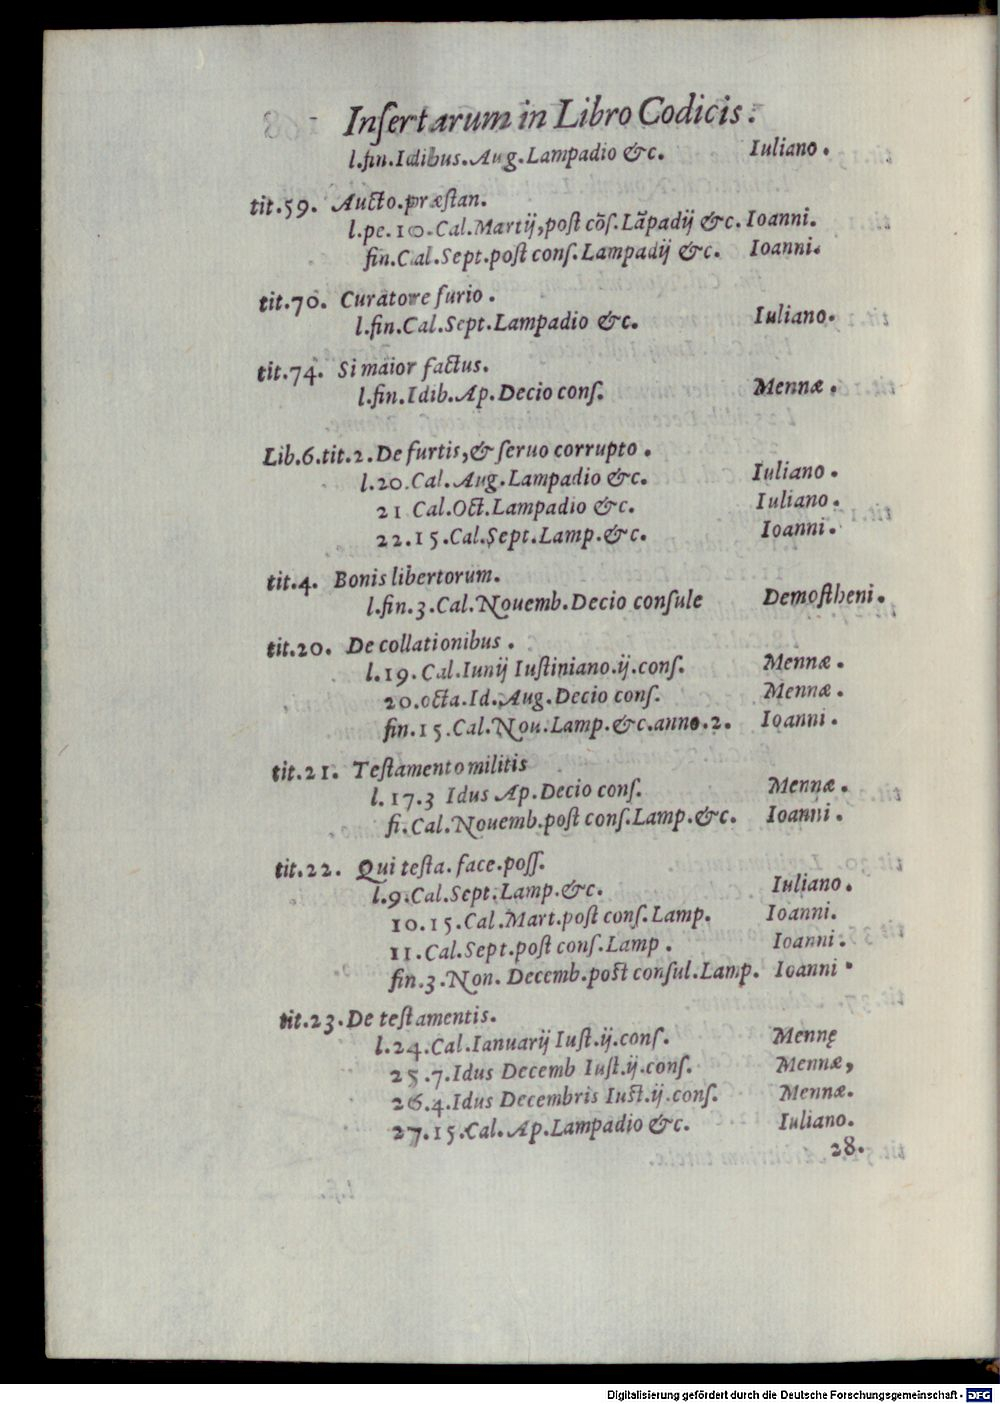 Inſertarum in Libro Codicis.
l.fin.Idibus.Aug.Lampadio &c. Iuliano.
tit.59. Aucto.præſtan.
l.pe.10.Cal.Martij,poſt cõſ.Lãpadij &c. Ioanni.
fin.Cal.Sept.poſt conſ.Lampadij &c. Ioanni.
tit.70. Curatore furio.
l.fin.Cal.Sept.Lampadio &c. Iuliano.
tit.74. Si maior factus.
l.fin.Idib.Ap.Decio conſ. Mennæ.
Lib.6.tit.2.De furtis,& ſeruo corrupto.
l.20.Cal.Aug.Lampadio &c. Iuliano.
21 Cal.Oct.Lampadio &c. Iuliano.
22.15.Cal.Sept.Lamp.&c. Ioanni.
tit.4. Bonis libertorum.
l.fin.3.Cal.Nouemb.Decio conſule Demoſtheni.
tit.20. De collationibus.
l.19.Cal.Iunij Iuſtiniano.ij.conſ. Mennæ.
20.octa.Id.Aug.Decio conſ. Mennæ.
fin.15.Cal.Nou.Lamp.&c.anno.2. Ioanni.
tit.21. Teſtamento militis
l.17.3 Idus Ap.Decio conſ. Mennæ.
fi.Cal.Nouemb.poſt conſ.Lamp.&c. Ioanni.
tit.22. Qui teſta.face.poſſ.
l.9.Cal.Sept.Lamp.&c. Iuliano.
10.15.Cal.Mart.poſt conſ.Lamp. Ioanni.
11.Cal.Sept.poſt conſ.Lamp. Ioanni.
fin.3.Non. Decemb.post conſul.Lamp. Ioanni.
tit.23.De teſtamentis.
l.24.Cal.Ianuarij Iuſt.ij.conſ. Mennę
25.7.Idus Decemb Iuſt.ij.conſ. Mennæ,
26.4.Idus Decembris Iust.ij.conſ. Mennæ.
27.15.Cal.Ap.Lampadio &c. Iuliano.
28.
Digitalisierung gefördert durch die Deutsche Forschungsgemeinschaft - DFG